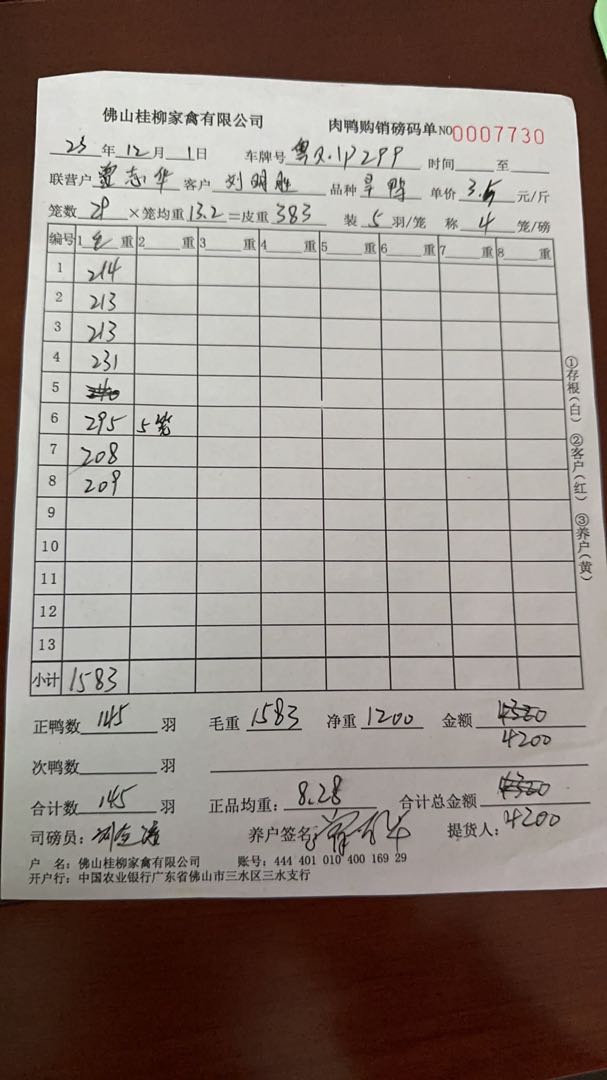 佛山桂柳家禽有限公司 肉鸭购销磅码单 NO 0007730
23 年 12 月 1 日 车牌号 时间 至
联营户 志华 客户 刘明胜 品种 旱鸭 单价 3.5 元/斤
笼数 29 ×笼均重 13.2 =皮重 383 装 5 羽/笼 称 4 笼/磅
编号 1 毛 重 2 重 3 重 4 重 5 重 6 重 7 重 8 重
1 214
2 213
3 213
4 231
5
6 295 5笼
7 208
8 209
9
10
11
12
13
小计 1583
①存根(白) ②客户(红) ③养户(黄)
正鸭数 145 羽 毛重 1583 净重 1200 金额 4320
4200
次鸭数 羽
合计数 145 羽 正品均重: 8.28 合计总金额 4320
4200
司磅员: 养户签名: 提货人:
户 名: 佛山桂柳家禽有限公司 账号: 444 401 010 400 169 29
开户行: 中国农业银行广东省佛山市三水区三水支行